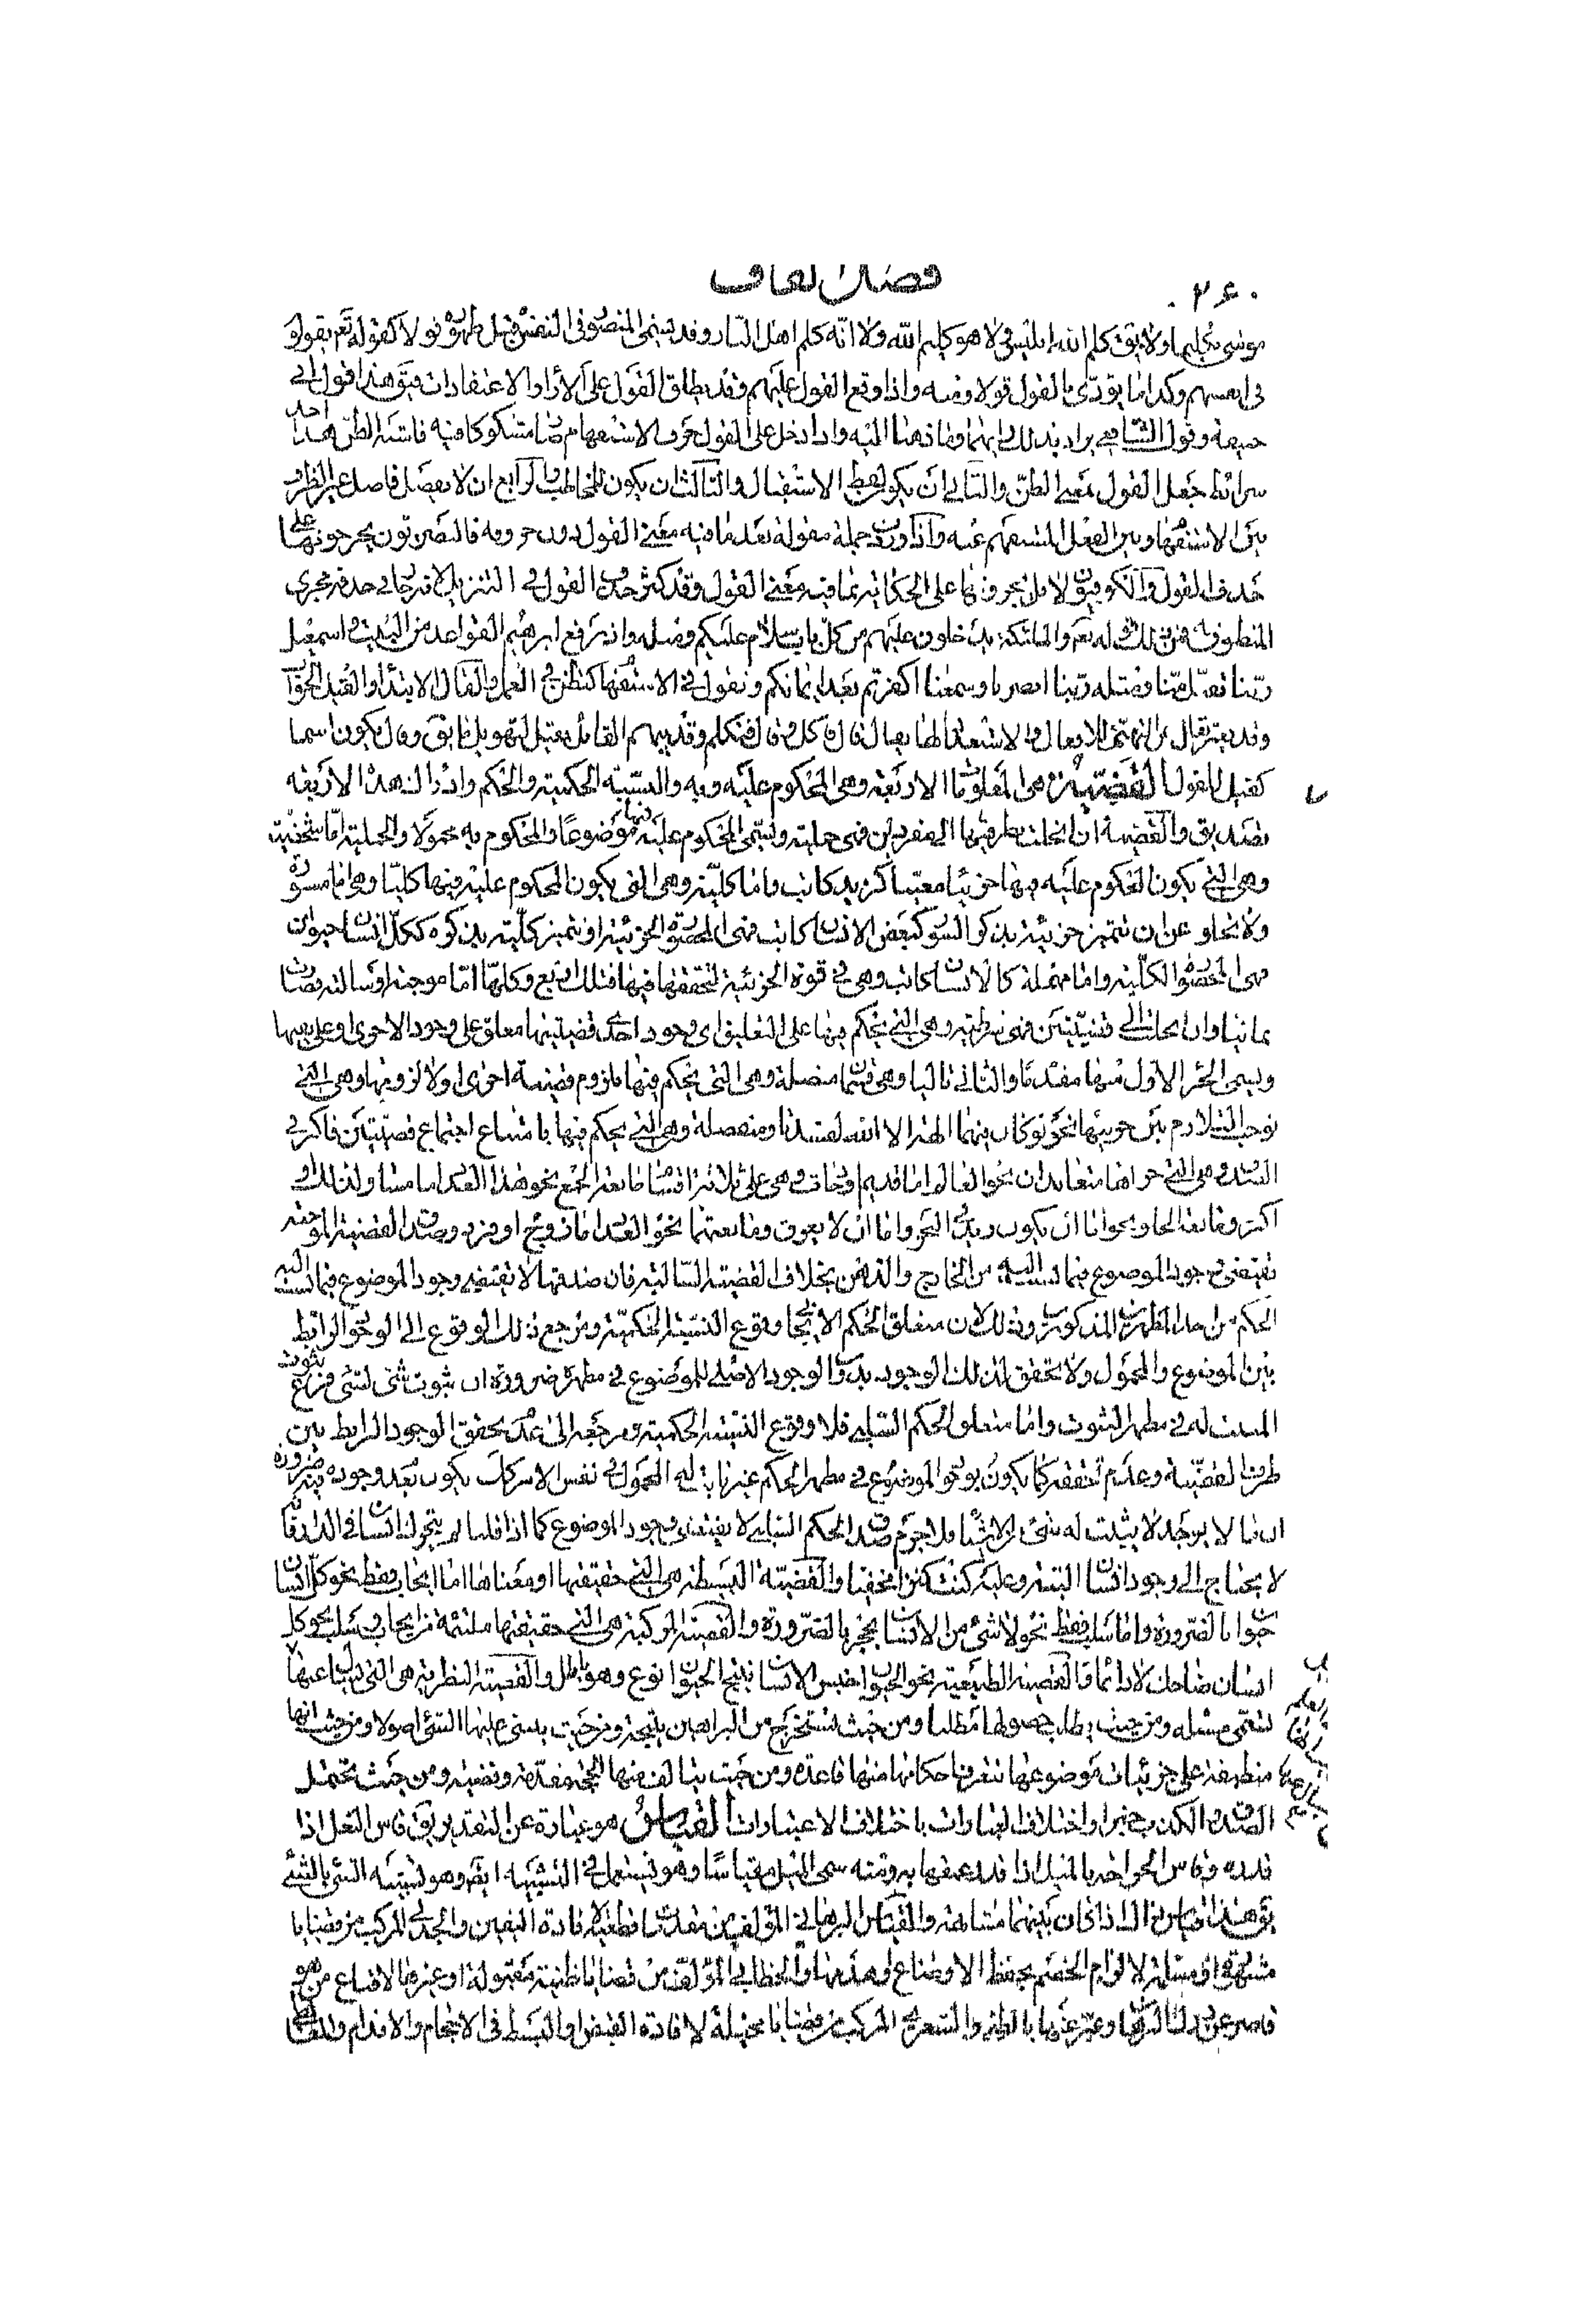 فصل القاف
٢٦٠
موسى تكليما ولا يق كلم الله ابليس ولا هو كليم الله ولا انه كلم اهل النار وقد يسمى المتصور فى النفس قبل ظهوره قولا كقوله تعم يقولون
فى انفسهم وكذا ما يؤدى بالقول قولا ومنه واذا وقع القول عليهم وقد يطلق القول على الآراء والاعتقادات فيق هذا قول ابى
حنيفة وقول الشافعى يراد بذلك رايهما وما ذهبا اليه واذا دخل على القول حرف الاستفهام صار مشكوكا فيه فاشبه الظن
شرائط جعل القول بمعنى الظن والثانى ان يكون بلفظ الاستقبال والثالث ان يكون للمخاطب والرابع ان لا يفصل فاصل غير الظرف
بين الاستفهام وبين الفعل المستفهم عنه واذا وردت جملة مقولة بعد ما فيه معنى القول بدون حروفه فالبصريون يخرجونها على
حذف القول والكوفيون لا بل يجرونها على الحكاية بما فيه معنى القول وقد كثر حذف القول فى التنزيل لانه جار فى حذفه مجرى
المنطوق به فمن ذلك قوله تعم والملائكة يدخلون عليهم من كل باب سلام عليكم ومثله واذ يرفع ابرهيم القواعد من البيت واسمعيل
ربنا تقبل منا ومثله ربنا ابصرنا وسمعنا اكفرتم بعد ايمانكم وتقول فى الاستفهام كتظن فى العمل والقال الابتداء والقيل الجواب
كقيل للقول القضية هى المعلومات الاربعة وهى المحكوم عليه وبه والنسبة الحكمية والحكم وادراك هذه الاربعة
تصديق والقضية ان انحلت بطرفيها الى مفردين فهى حملية ويسمى المحكوم عليه فيها موضوعا والمحكوم به محمولا والحملية اما شخصية
وهى التى يكون المحكوم عليه فيها جزئيا معينا كزيد كاتب واما كلية وهى التى يكون المحكوم عليه فيها كليا وهى اما مسورة
ولا يخلو عن ان تتميز جزئيته بذكر السور كبعض الانسان كاتب فهى المحصورة الجزئية او تتميز كليته بذكره ككل انسان حيوان
فهى المحصورة الكلية واما مهملة كالانسان كاتب وهى فى قوة الجزئية لتحققها فيها فتلك اربع وكلها اما موجبة او سالبة فصارت
ثمانيا وان انحلت الى قضيتين فهى شرطية وهى التى يحكم فيها على التعليق اى وجود احدى قضيتيها معلق على وجود الاخرى او على نفيها
ويسمى الجزء الاول منها مقدما والثانى تاليا وهى قسمان متصلة وهى التى يحكم فيها بلزوم قضية اخرى اولا لزومها وهى التى
توجب التلازم بين جزئيها نحو لو كان فيهما الهة الا الله لفسدتا ومنفصلة وهى التى يحكم فيها بامتناع اجتماع قضيتين فاكثر فى
تقتضى وجود الموضوع فيما من الخارج والذهن بخلاف القضية السالبة فان صدقها لا تقتضى وجود الموضوع فيما
الحكم من هذا الظرف المذكورين وذلك لان متعلق الحكم الايجابى وقوع النسبة الحكمية ومرجع ذلك الوقوع الى الوجود الرابط
بين الموضوع والمحمول ولا يتحقق لذلك الوجود بدون الوجود الاصلى للموضوع فى مظهره ضرورة ان ثبوت شئ لشئ فرع ثبوت
المثبت له فى مظهر الثبوت واما متعلق الحكم السلبى فلا وقوع النسبة الحكمية ومرجعه الى عدم تحقق الوجود الرابط بين
طرفى القضية وعدم تحققه كما يكون بوجود الموضوع فى مظهر الحكم غير ثابت له المحمول فى نفس الامر كك يكون بعد وجوده فيه ضرورة
ان ما لا يوجد لا يثبت له شئ من الاشياء فلا جرم صدق الحكم السلبى لا يقتضى وجود الموضوع كما اذا قلنا لم يتحرك انسان فى الدار فانه
لا يحتاج الى وجود انسان البتة وعليه كنت كنزا مخفيا والقضية البسيطة هى التى حقيقتها او معناها اما ايجاب فقط نحو كل انسان
حيوان بالضرورة واما سلب فقط نحو لا شئ من الانسان بحجر بالضرورة والقضية المركبة هى التى حقيقتها ملتئمة من ايجاب وسلب نحو كل
انسان ضاحك لا دائما والقضية الطبيعية نحو الحيوان جنس الانسان ينتج الحيوان نوع وهو باطل والقضية النظرية هى التى يسأل عنها
تسمى مسئلة ومن حيث يطلب حصولها مطلبا ومن حيث تستخرج من البراهين نتيجة ومن حيث يبتنى عليها الشئ اصولا ومن حيث انها
منطبقة على جزئيات موضوعها تتعرف احكامها منها قاعدة ومن حيث يتالف منها الحجة مقدمة وقضية ومن حيث تحتمل
الصدق والكذب خبرا واختلاف العبارات باختلاف الاعتبارات القياس هو عبارة عن التقدير يق قاس النعل اذا
قدره وقاس الجراحة بالميل اذا قدر عمقها به ومنه سمى الميل مقياسا وهو يستعمل فى التشبيه ايضا وهو تشبيه الشئ بالشئ
يق هذا قياس ذاك اذا كان بينهما مشابهة والقياس البرهانى المؤلف من مقدمات قطعية لافادة اليقين والجدلى المركب من قضايا
مشهورة او مسلمة لالزام الخصم بحفظ الاوضاع او هدمها والخطابى المؤلف من قضايا ظنية مقبولة او غيرها لاقناع من هو
قاصر عن درك البرهان وعبر عنها بالظنية والشعرى المركب من قضايا مخيلة لافادة القبض او البسط فى الاحجام والاقدام